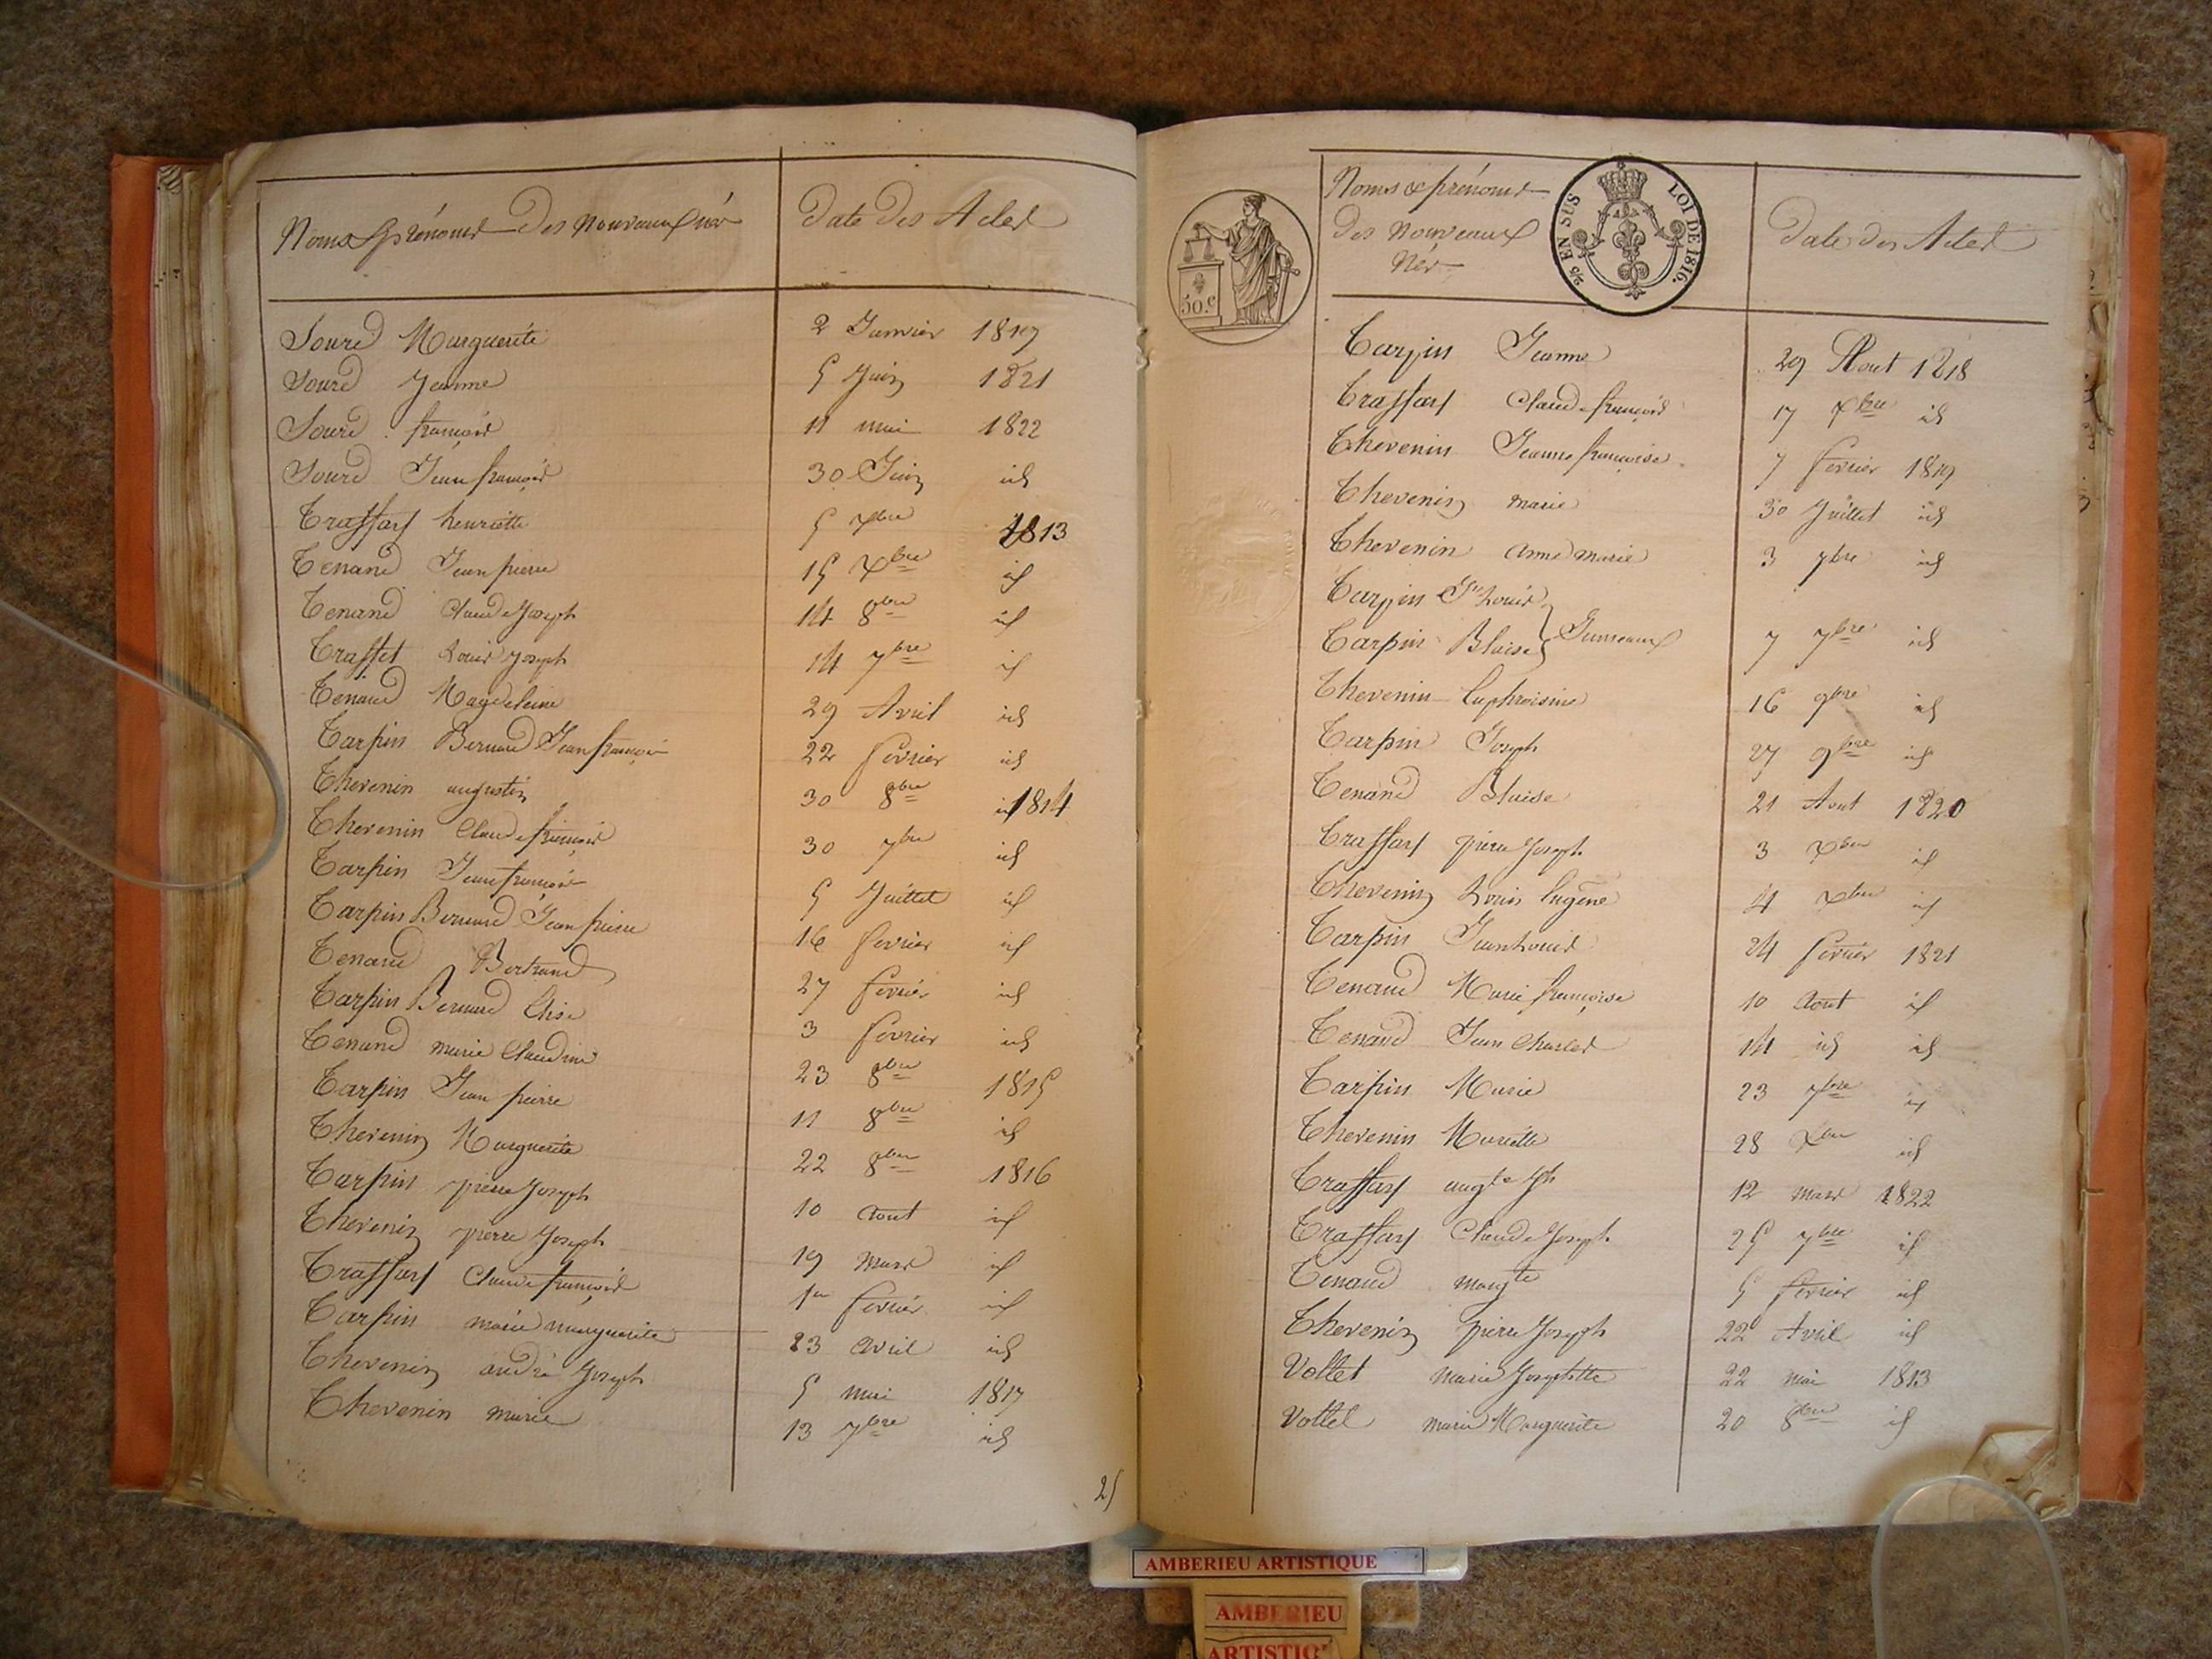 Noms & prénoms des nouveaux nés Date des Actes
Sourd Marguerite 2 Janvier 1819
Sourd Jeanne 5 Juin 1821
Sourd françois 11 mai 1822
Sourd Jean françois 30 Juin id
Traffay henriette 5 7bre 1813
Tenand Jean pierre 15 Xbre id
Tenand Claude Joseph 14 8bre id
Traffet Louis Joseph 14 7bre id
Tenand Magdeleine 29 Avril id
Tarpin Bernard Jean françois 22 février id
Thevenin augustin 30 8bre 1814
Thevenin Claude françois 30 7bre id
Tarpin Jean françois 5 Juillet id
Tarpin Bernard Jean pierre 16 fevrier id
Tenand Bertrand 27 fevrier id
Tarpin Bernard Elise 3 fevrier id
Tenand marie Claudine 23 8bre 1815
Tarpin Jean pierre 11 8bre id
Thevenin Marguerite 22 8bre 1816
Tarpin pierre Joseph 10 Aout id
Thevenin pierre Joseph 19 mars id
Traffay Claude françois 1er fevrier id
Tarpin marie marguerite 23 avril id
Thevenin andré Joseph 5 mai 1817
Thevenin marie 13 7bre id
25
50.c
Noms & prénoms
des nouveaux
Nés
2/5 EN SUS LOI DE 1816.
Date des Actes
Tarpin Jeanne 29 Aout 1818
Traffay Claude françois 17 Xbre id
Thevenin Jeanne françoise 7 fevrier 1819
Thevenin marie 30 Juillet id
Thevenin anne marie 3 7bre id
Tarpin Jn Louis
Tarpin Blaise } Jumeaux 7 7bre id
Thevenin Euphroisine 16 9bre id
Tarpin Joseph 27 9bre id
Tenand Blaise 21 Aout 1820
Traffay pierre Joseph 3 Xbre id
Thevenin Louis Eugène 4 Xbre id
Tarpin Jean Louis 24 fevrier 1821
Tenand Marie françoise 10 Aout id
Tenand Jean Charles 14 id id
Tarpin Marie 23 7bre id
Thevenin Mariette 28 Xbre id
Traffay augte Jh 12 mars 1822
Traffay Claude Joseph 25 7bre id
Tenand margte 5 fevrier id
Thevenin pierre Joseph 22 Avril id
Vollet marie Josephtte 22 mai 1813
Vollet marie Marguerite 20 8bre id
AMBERIEU ARTISTIQUE
AMBERIEU
ARTISTIQ